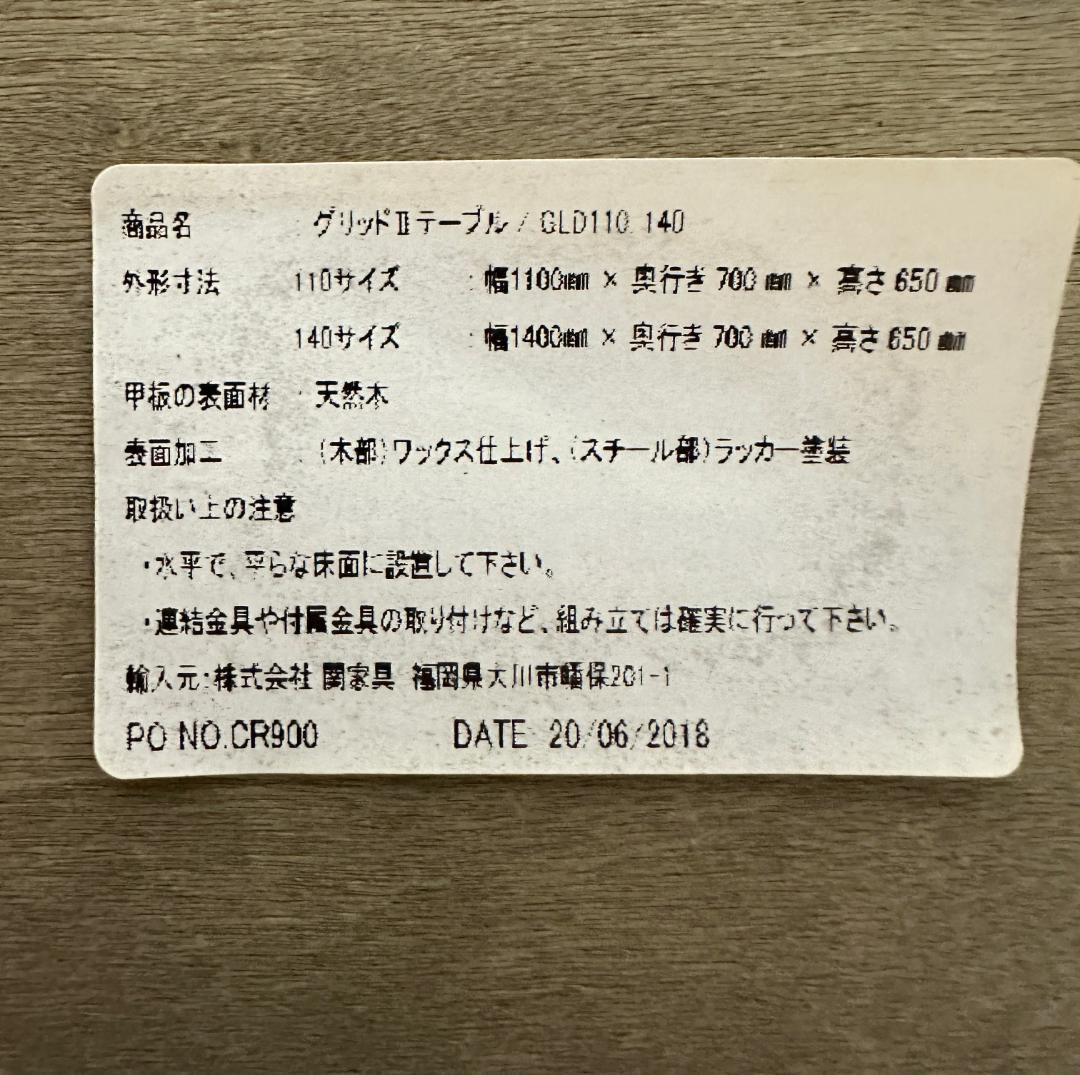 商品名 : グリッドⅡテーブル / GLD110.140
外形寸法 110サイズ : 幅1100㎜ × 奥行き 700 ㎜ × 高さ 650 ㎜
140サイズ : 幅1400㎜ × 奥行き 700 ㎜ × 高さ 650 ㎜
甲板の表面材 : 天然木
表面加工 : (木部)ワックス仕上げ、(スチール部)ラッカー塗装
取扱い上の注意
・水平で、平らな床面に設置して下さい。
・連結金具や付属金具の取り付けなど、組み立ては確実に行って下さい。
輸入元:株式会社 関家具 福岡県大川市幡保201-1
PO NO.CR900 DATE 20/06/2018